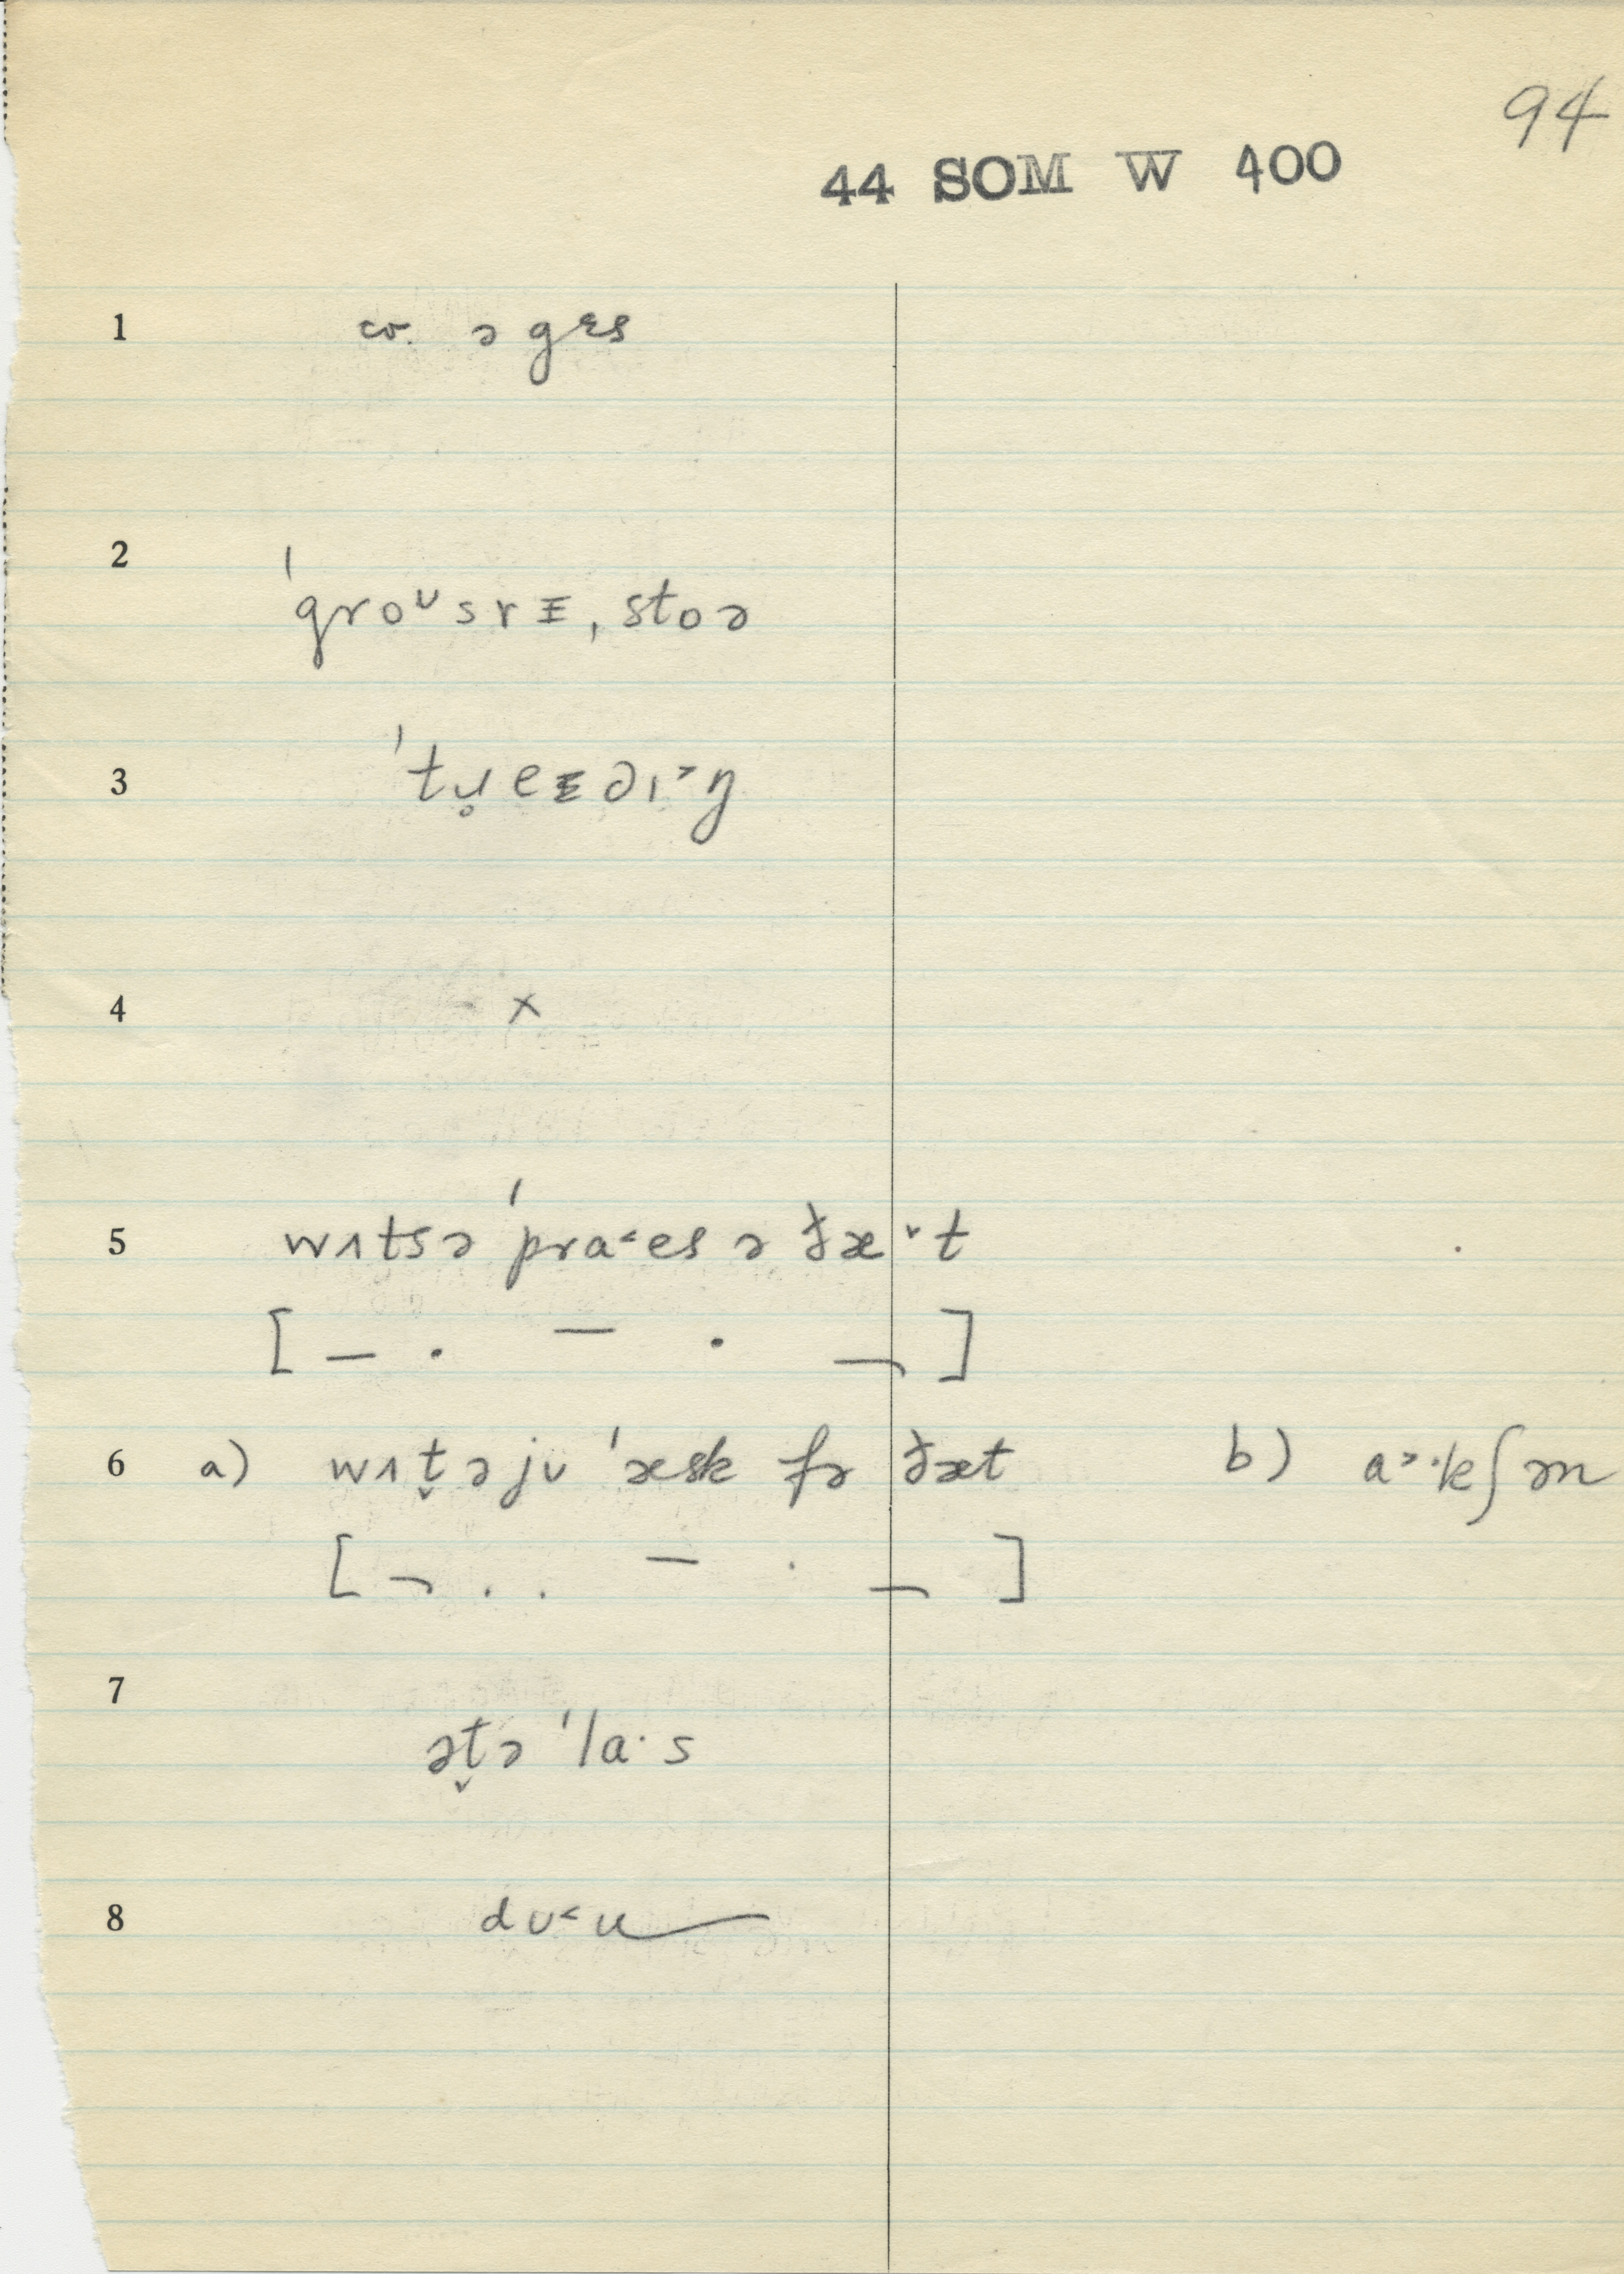 94
44 SOM W 400
1 cr. ə gɛs
2 ˈgroᶷsrɪ ˌstoə
3 ˈtɹ̥eɪdɪ˃ŋ
4 x
5 wʌtsə ˈpra˂es ə ðæˇt
[ – . – . – ]
6 a) wʌt̬əjʊ ˈæsk fə ðæt b) a˃·kʃən
[ ¬ . . – . ¬ ]
7 ət̬ə ˈla·s
8 dʊ˂u